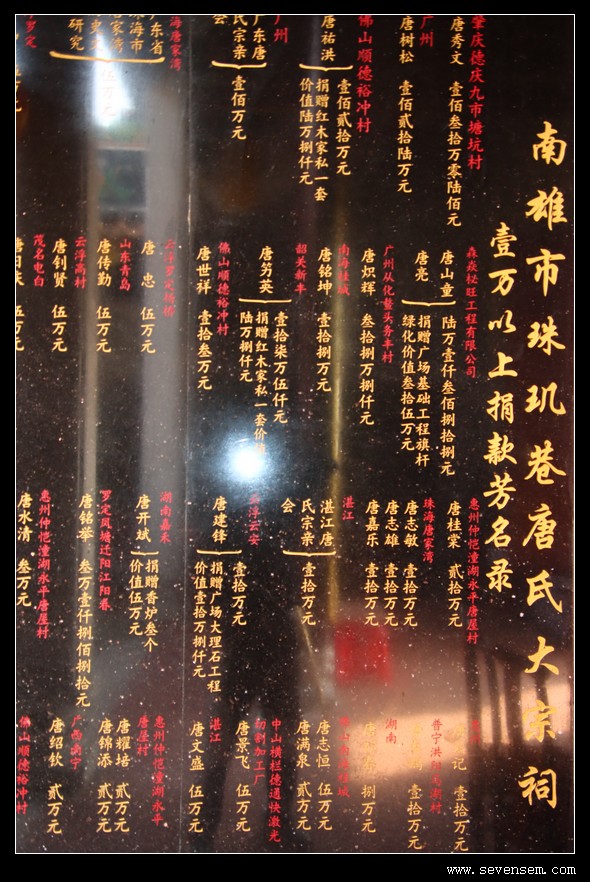 南雄市珠玑巷唐氏大宗祠
壹万以上捐款芳名录
肇庆德庆九市塘坑村
唐秀文 壹佰叁拾万零陆佰元
广州
唐树松 壹佰贰拾陆万元
佛山顺德裕冲村
唐祐洪
壹佰贰拾万元
捐赠红木家私一套
价值陆万捌仟元
广州
广东唐
氏宗亲
会
壹佰万元
海唐家湾
广东省
珠海市
唐家湾
研究
伍万元
罗定
森焱秘旺工程有限公司
唐山童 陆万壹仟叁佰捌拾捌元
唐亮
捐赠广场基础工程旗杆
绿化价值叁拾伍万元
广州从化鳌头务丰村
唐炽辉 叁拾捌万捌仟元
唐铭坤 壹拾捌万元
韶关新丰
唐笏英
壹拾柒万伍仟元
捐赠红木家私一套价值
陆万捌仟元
佛山顺德裕冲村
唐世祥 壹拾叁万元
唐忠 伍万元
山东青岛
唐传勤 伍万元
云浮高村
唐钊贤 伍万元
茂名电白
伍万元
惠州仲恺潼湖永平唐屋村
唐桂棠 贰拾万元
珠海唐家湾
唐志敏 壹拾万元
唐志雄 壹拾万元
唐嘉乐 壹拾万元
湛江
湛江唐
氏宗亲
会
壹拾万元
云浮云安
唐建锋
壹拾万元
捐赠广场大理石工程
价值壹拾万捌仟元
湖南嘉禾
唐开斌
捐赠香炉叁个
价值伍万元
罗定凤塘迁阳江阳春
唐铭举 叁万壹仟捌佰捌拾元
惠州仲恺潼湖永平唐屋村
唐水清 叁万元
记 壹拾万元
壹拾万元
湖南
捌万元
唐志恒 伍万元
唐满泉 贰万元
中山横栏德通快激光
切割加工厂
唐景飞 伍万元
湛江
唐文盛 伍万元
惠州仲恺潼湖永平
唐屋村
唐耀培 贰万元
唐锦添 贰万元
广西南宁
唐绍钦 贰万元
佛山顺德裕冲村
www.sevensem.com